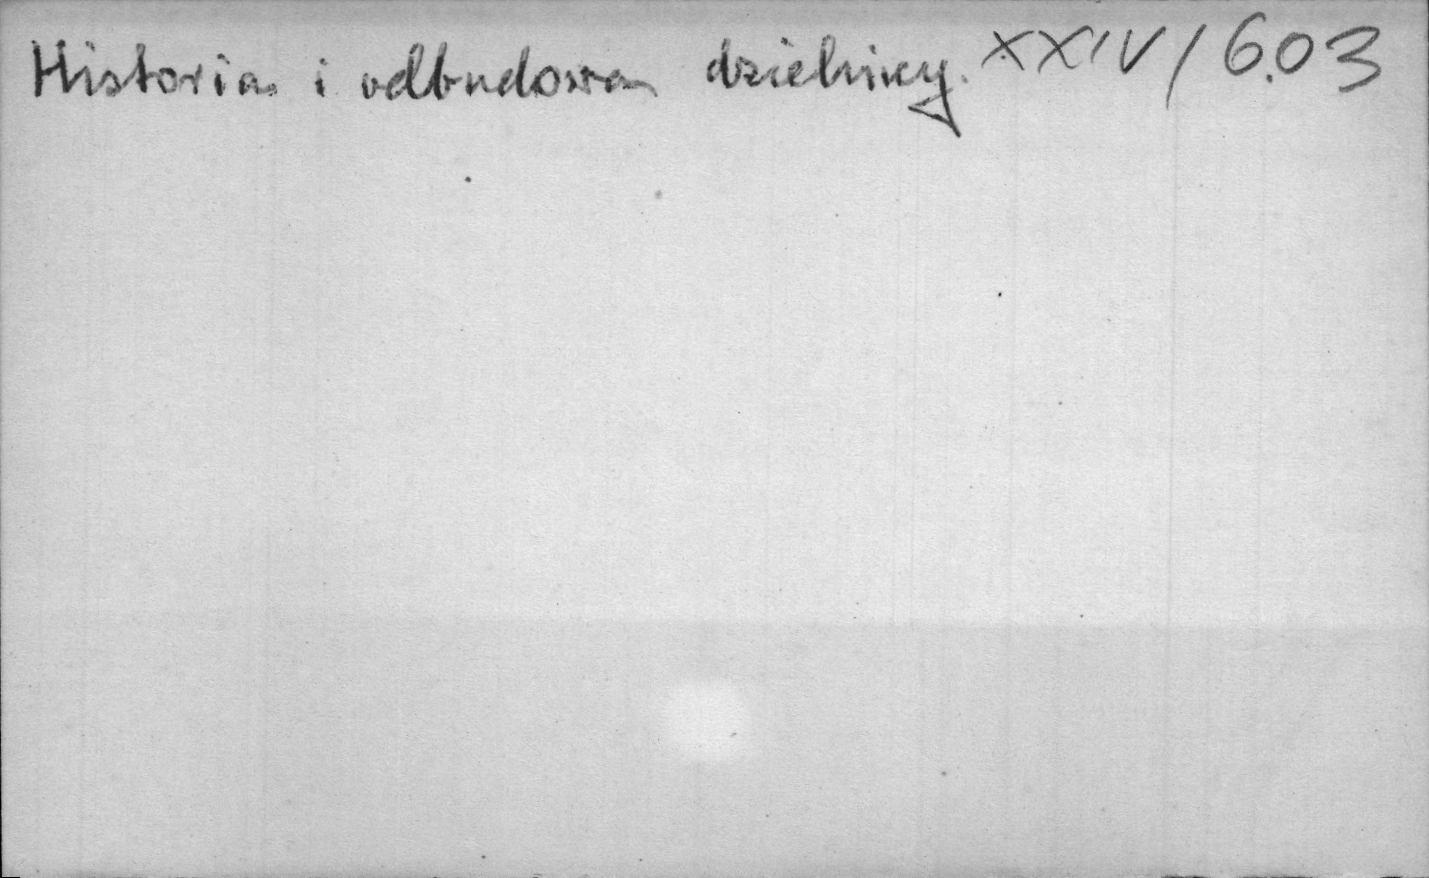 Historia i odbudowa dzielnicy. XXIV/6.03